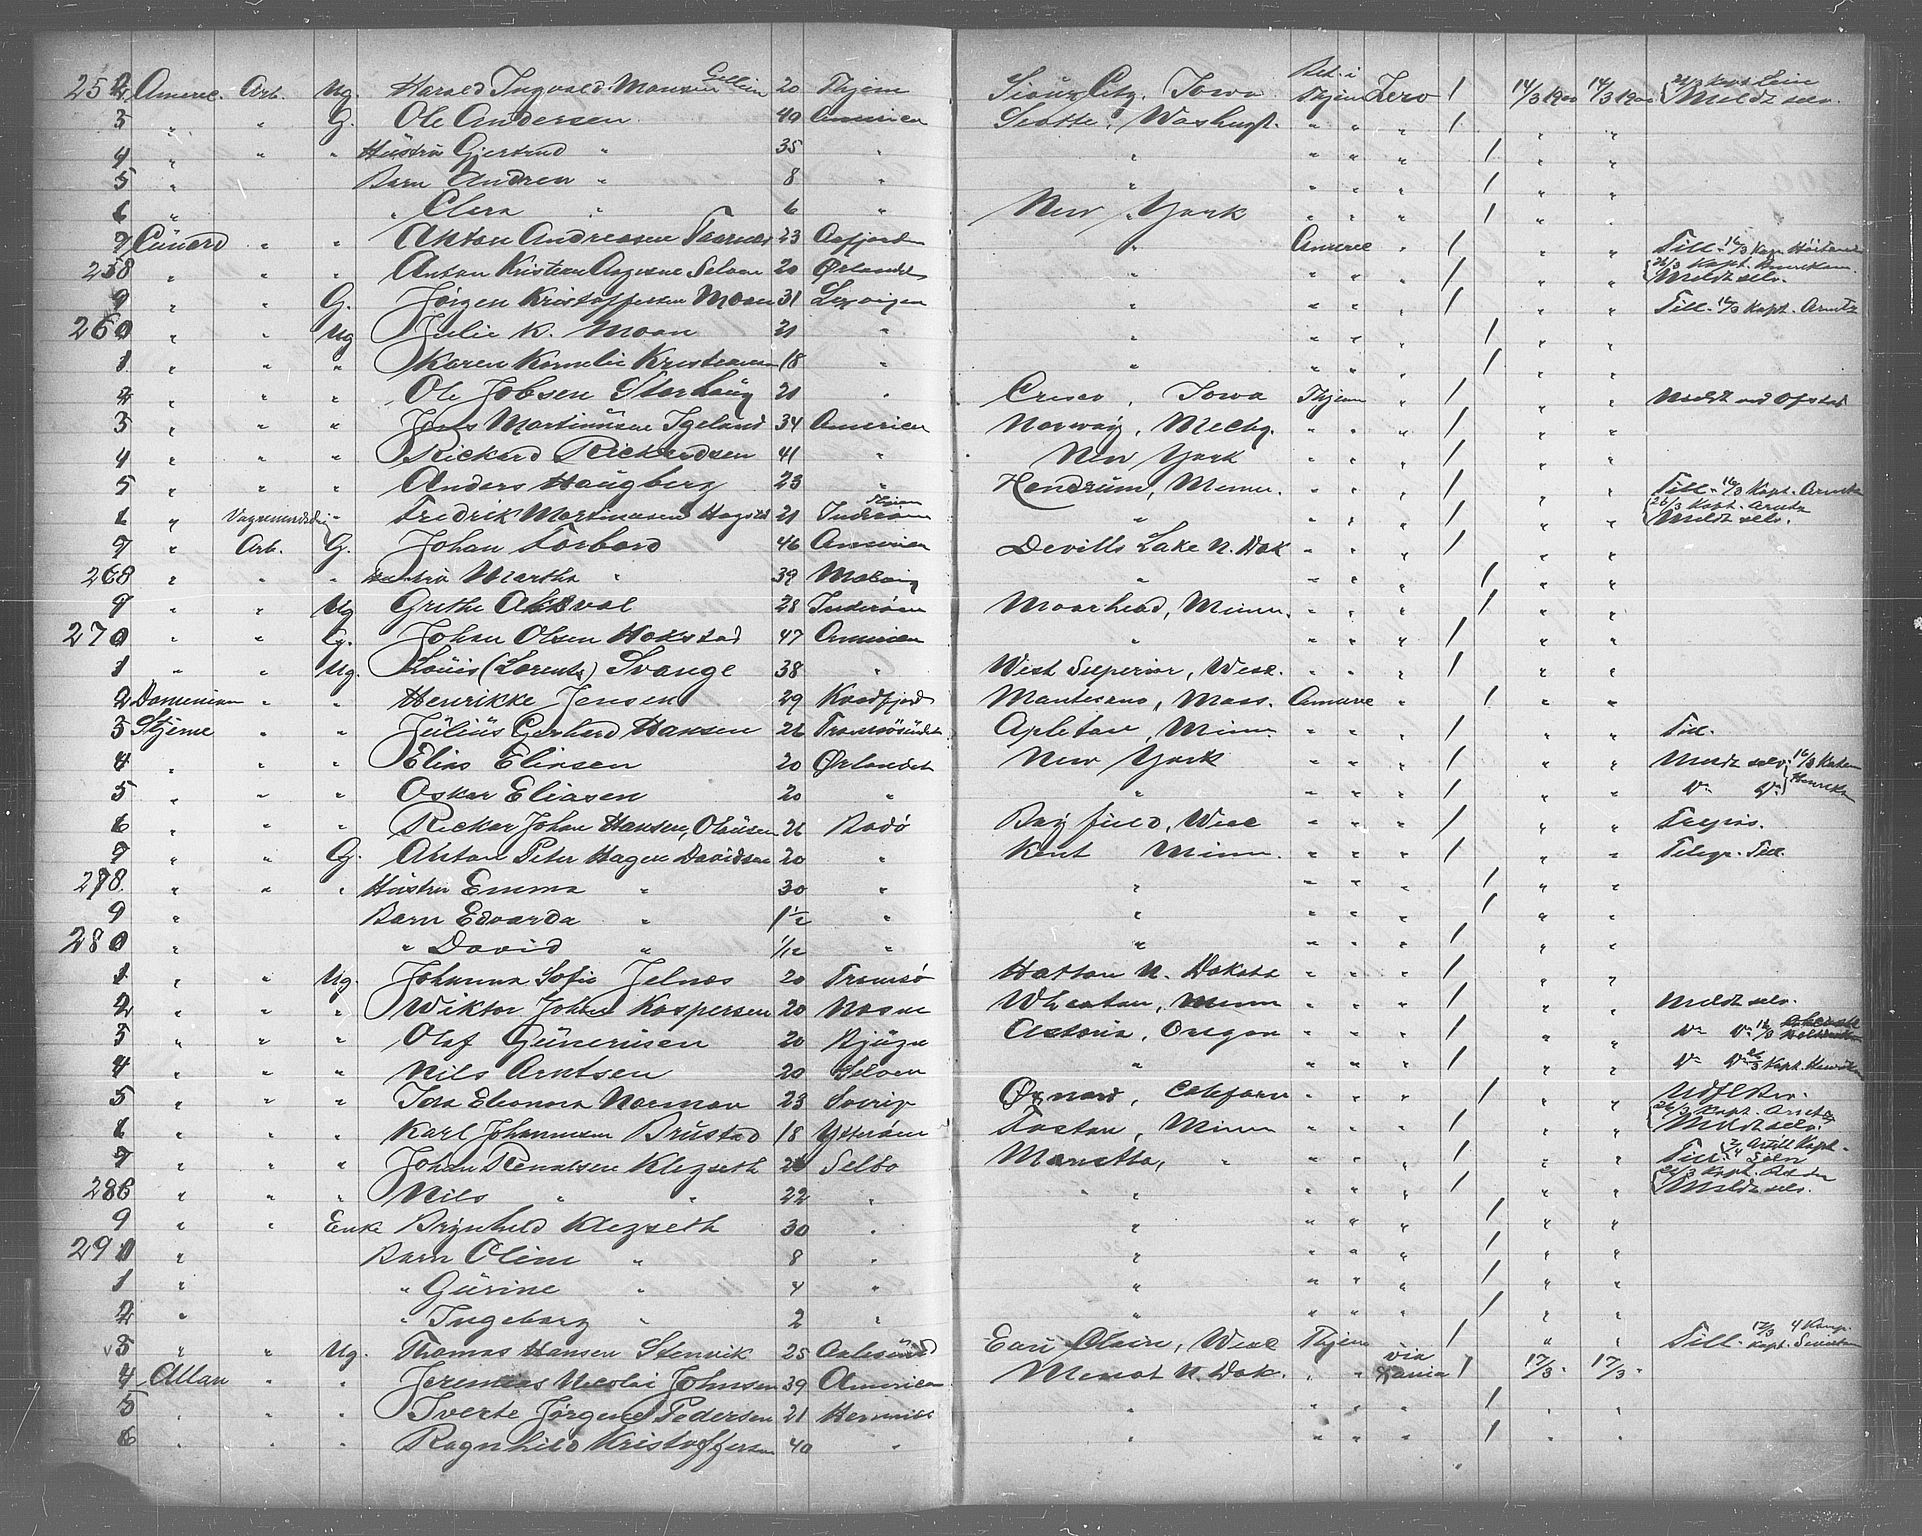 252 Americ. Arb. Ug. Harald Ingvald Monsen Gellein 20 Thjem Sioux City, Iowa Bet. i Thjem Zero 1 14/3 1900 14/3 1900 Meldt selv.
3 " " G. Ole Andersen 40 Amerika Seattle, Washingt. " " " 1 " "
4 " " " Hustru Gjertrud " 35 " " " " " 1 " "
5 " Barn Andrea " 8 " " " " " 1 " "
6 " " Clara " 6 " New York " " " 1 " "
7 Cunard " " Anton Andreasen 23 Aafjorden " Amerec " 1 " " Till. 16/3 Kap.
258 " " " Anton Kristian Selven 20 Ørlandet " " " " 1 " " 26/3 Kapt. Henriksen. Meldt selv.
9 " " G. Jørgen Kristoffersen Moan 31 Lexvigen " " " " 1 " " Till. 16/3 Kapt. Arntz
260 " " Ug Julie K. Moan 21 " " " " " 1 " "
1 " " " Karen Kornelie Kristiansen 18 " " " " " 1 " "
2 " " " Ole Jobsen Storhaug 21 " Cresco, Iowa Thjem " 1 " " Meldt ved Ofstad
3 " " " Martinusen Igeland 34 Amerika Norway, Mechg. " " " 1 " "
4 " " " Rickard Rickardsen 41 " New York " " " 1 " "
5 " " " Anders Haugberg 23 " Hendrum, Minn. " " " 1 " " Till. 16/3 Kapt. Arntz
6 " " Fredrik Martinusen 21 Inderøen Thjem " " " " 1 " " 26/3 Kapt. Arntz Meldt selv.
7 " Arb. G. Johan Forbord 46 Amerika Devills Lake N. Dak " " " 1 " "
268 " " " Hustru Martha " 39 Malvig " " " " 1 " "
9 " " Ug Grethe 28 Inderøen Moorhead, Minn. " " " 1 " "
270 " " G. Johan Olsen Hokstad 47 Amerika " " " " 1 " "
1 " " Ug. Louis (Lorents) Svange 38 " West Superior, Wesc. " " " 1 " "
2 Dominion " " Henrikke Jensen 29 Kvædfjord Mass. Amerec " 1 " "
3 Stjerne " " Julius Gerhard Hansen 26 Tromsøsundet Apleton, Minn. " " " 1 " " Till.
4 " " " Elias Eliasen 20 Ørlandet New York " " " 1 " " Meldt selv. 16/3
5 " " " Oskar Eliasen 20 " " " " " 1 " " Do Do
6 " " " Rickar Johan Hansen, Olausen 26 Bodø Bayfield, Wesc " " " 1 " "
7 " " G. Anton Peter Hagen Davidsen 20 " Kent Minn. " " " 1 " " Telegr. Till.
278 " " " Hustru Emma " 30 " " " " " 1 " "
9 " Barn Edvarda " 1 1/2 " " " " " 1 " "
280 " " David " 1/12 " " " " " 1 " "
1 " " Ug. Johanna Sofie Jelnes 20 Tromsø Hatton N. Dakota " " " 1 " "
2 " " " Wiktor Johan Kaspersen 20 Nesne Wheaton, Minn " " " 1 " " Meldt selv.
3 " " " Olaf Gunerusen 20 Bjugn Astoria, Oregon " " " 1 " " Do Do 16/3
4 " " " Nils Arntsen 20 Selven " " " " 1 " " Do Do 26/3 Kapt. Henriksen
5 " " " Ida Eleonora Norman 23 Sverig Oxnard, Californ " " " 1 " "
6 " " " Karl Johannesen Brustad 18 Ytterøen Foston, Minn " " " 1 " " 26/3 Kapt. Arntz Meldt selv.
7 " " " Johan Renaldsen Klegseth 24 Selbo Marietta, " " " " 1 " " Till.
288 " " " Nils " " 22 " " " " " 1 " " Meldt selv.
9 " " Enke Brynhild Klegseth 30 " " " " " 1 " "
290 " Barn Oline " 8 " " " " " 1 " "
1 " " Gurine " 4 " " " " " 1 " "
2 " " Ingeborg " 2 " " " " " 1 " "
3 " " Ug. Thomas Hansen Stenvik 25 Aalesund Eau Claire, Wesc Thjem " 1 " " Till. 17/3 4 Komp. Kapt.
4 Allan " " Jeremias Nicolai Johnsen 39 Amerika Minot N. Dak. " " via Xania 1 17/3 17/3
5 " " " Sverte Jørgine Pedersen 21 Hemnes " " " " 1 " "
6 " " " Ragnhild Kristoffersen 40 " " " " " 1 " "